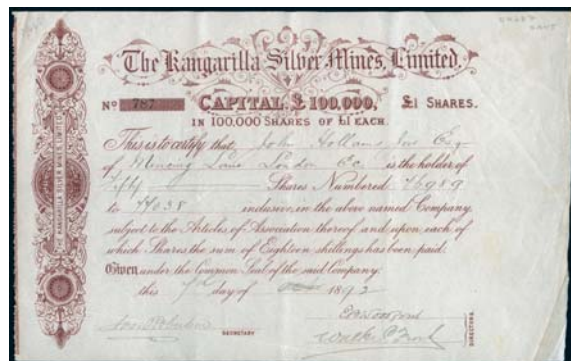 The Kangarilla Silver Mines, Limited.
No 787 CAPITAL £100,000, £1 SHARES.
IN 100,000 SHARES OF £1 EACH.
This is to certify that John Hollams Jnr Esq
of Mincing Lane London Ec is the holder of
Fifty Shares Numbered 76989
to 77038 inclusive, in the above named Company
subject to the Articles of Association thereof and upon each of
which Shares the sum of Eighteen shillings has been paid.
Given under the Common Seal of the said Company.
this 7th day of 1892
SECRETARY
DIRECTORS.
THE KANGARILLA SILVER MINES, LIMITED